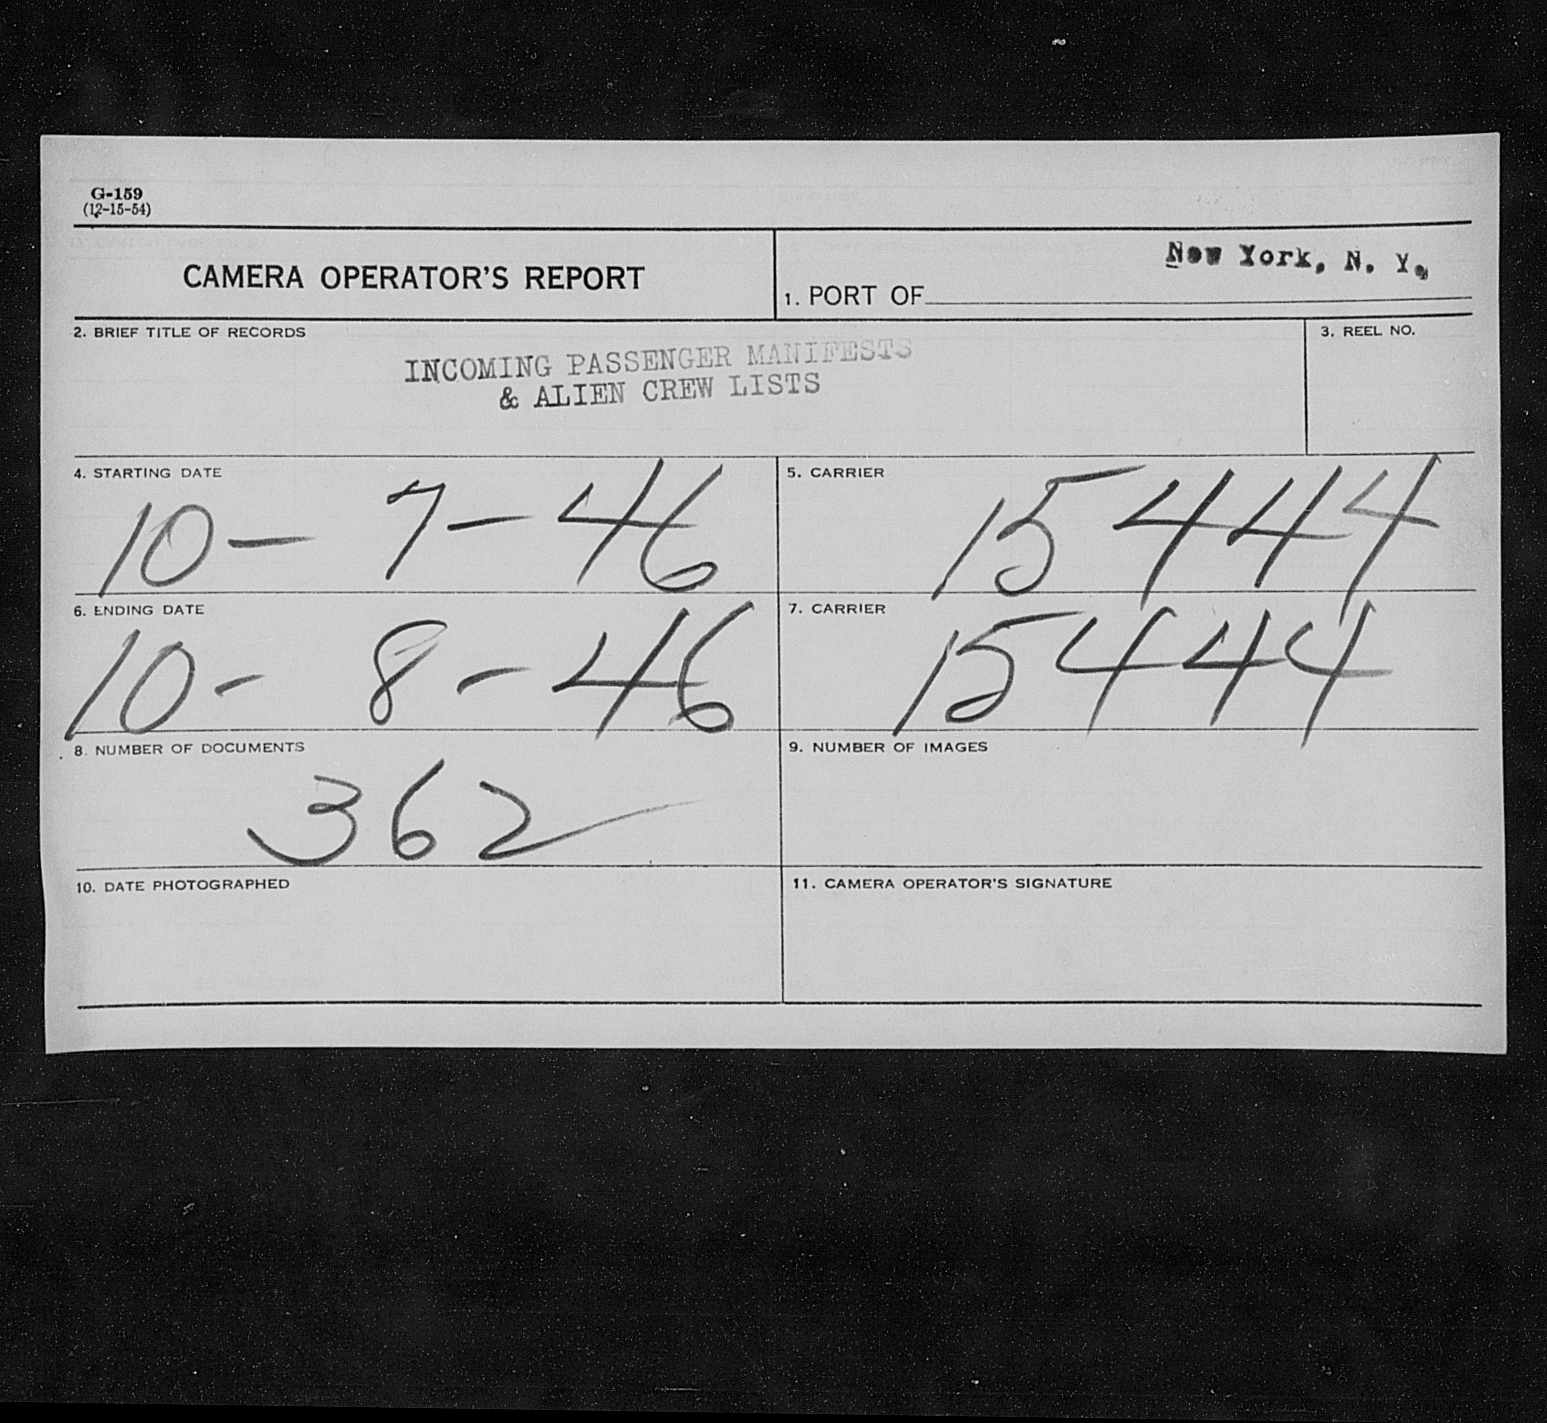 G-159
(12-15-54)
CAMERA OPERATOR'S REPORT
1. PORT OF New York, N. Y.
2. BRIEF TITLE OF RECORDS
INCOMING PASSENGER MANIFESTS
& ALIEN CREW LISTS
3. REEL NO.
4. STARTING DATE
10-7-46
5. CARRIER
15444
6. ENDING DATE
10-8-46
7. CARRIER
15444
8. NUMBER OF DOCUMENTS
362
9. NUMBER OF IMAGES
10. DATE PHOTOGRAPHED
11. CAMERA OPERATOR'S SIGNATURE